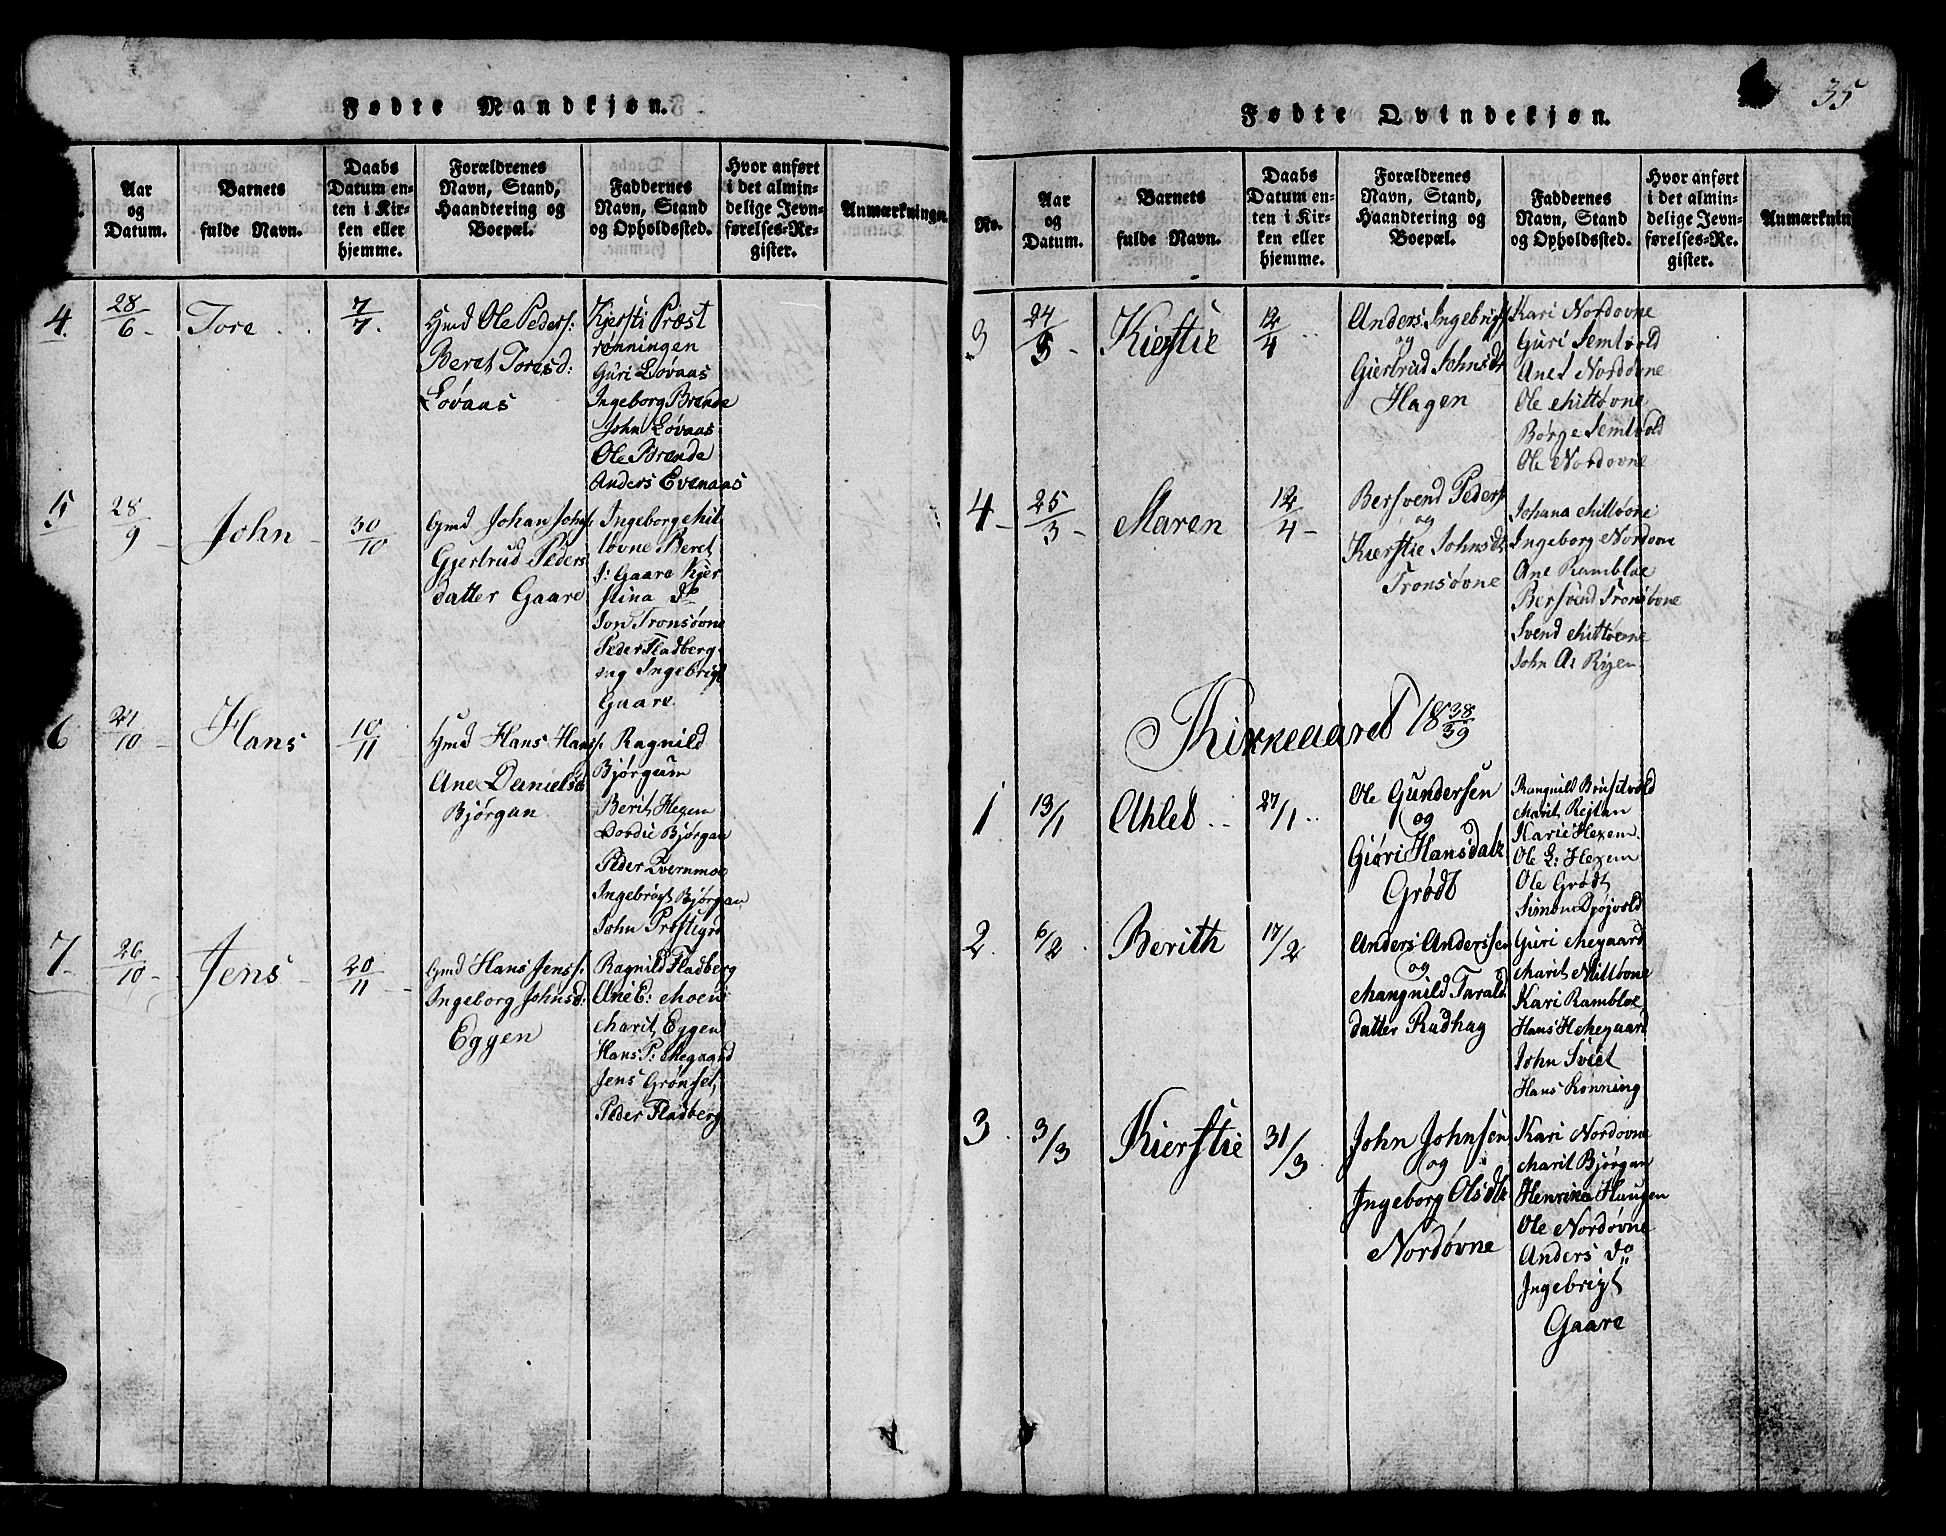 35
Fødte Mandkjøn.
Aar og Datum.
Barnets fulde Navn.
Daabs Datum enten i Kirken eller hjemme.
Forældrenes Navn, Stand, Haandtering og Boepæl.
Faddernes Navn, Stand og Opholdssted.
Hvor anført i det almindelige Jevnførelses-Register.
Anmærkninger
4. 28/6 - Tore 7/7.
Gmd Ole Peders:
Beret Toresd:
Løvaas
Kjersti Præst
rønningen
Guri Løvaas
Ingeborg Brende
John Løvaas
Ole Brænde
Anders Evenaas
5 28/9 - John - 30/10
Gmd Johan Johs:
Gjertrud Peders
datter Gaare
Ingeborg Mit
tøvne Beret
J: Gaare Kjer
stina Do
Jon Tronsøvne
Peder Fladberg
og Ingebrigt
Gaare.
6 21/10 - Hans 10/11
Gmd Hans Hans:
Ane Danielsd
Bjørgan
Ragnild
Bjørgum
Berit Hexem
Dordie Bjørgan
Peder Kvernmoe
Ingebrigt Bjørgan
John Præstigrd
7 - 26/10 - Jens - 20/11 -
Gmd Hans Jens:
Ingeborg Johnsd:
Eggen
Ragnild Fladberg
Ane E: Moen
Marit Eggen
Hans P: Megaard
Jens Grønset
Peder Fladberg
Fødte Qvindekjøn.
No.
Aar og Datum.
Barnets fulde Navn.
Daabs Datum enten i Kirken eller hjemme.
Forældrenes Navn, Stand, Haandtering og Boepæl.
Faddernes Navn, Stand og Opholdssted.
Hvor anført i det almindelige Jevnførelses-Re. gister.
Anmærknin
3 24/3 - Kierstie 12/4
Anders Ingebrigts
og
Giertrud Johnsdt
Hagen
Kari Nordøvne
Guri Semtvold
Anet Nordøvne
Ole Mittøvne
Børge Semtvold
Ole Nordovne
4 - 25/3 - Maren 12/4 -
Bersvend Peders
og
Kierstie Johnsdt
Tronsøvne
Johana Mittøvne
Ingeborg Nordovne
Ane Rambloe
Bersvend Tronsøvne
Svend Mittøvne
John A: Ryen
Kirkeaaret 1838/39
1 13/1 Ahlet 27/1
Ole Gundersen
og
Giøri Hansdatr
Grødt
Rangnild Brusetvold
Marit Rejtan
Karie Hexem
Ole L: Hexem
Ole Grødt
Simon Drøjvold
2. 6/2 Berith 17/2
Anders Anderssen
og
Mangnild Tarald
datter Rudhag
Guri Megaard
Marit Mittøvne
Kari Rambloe
Hans H Megaard
John Sviet
Hans Rønning
3. 3/3 Kierstie 31/3
John Johnsen
og
Ingeborg Olsdtr
Nordøvne
Kari Nordøvne
Marit Bjørgan
Henrika Haugen
Ole Nordøvne
Anders do
Ingebrigt
Gaare